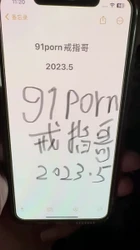 11:20
备忘录
91porn戒指哥
2023.5
91porn
戒指哥
2023.5